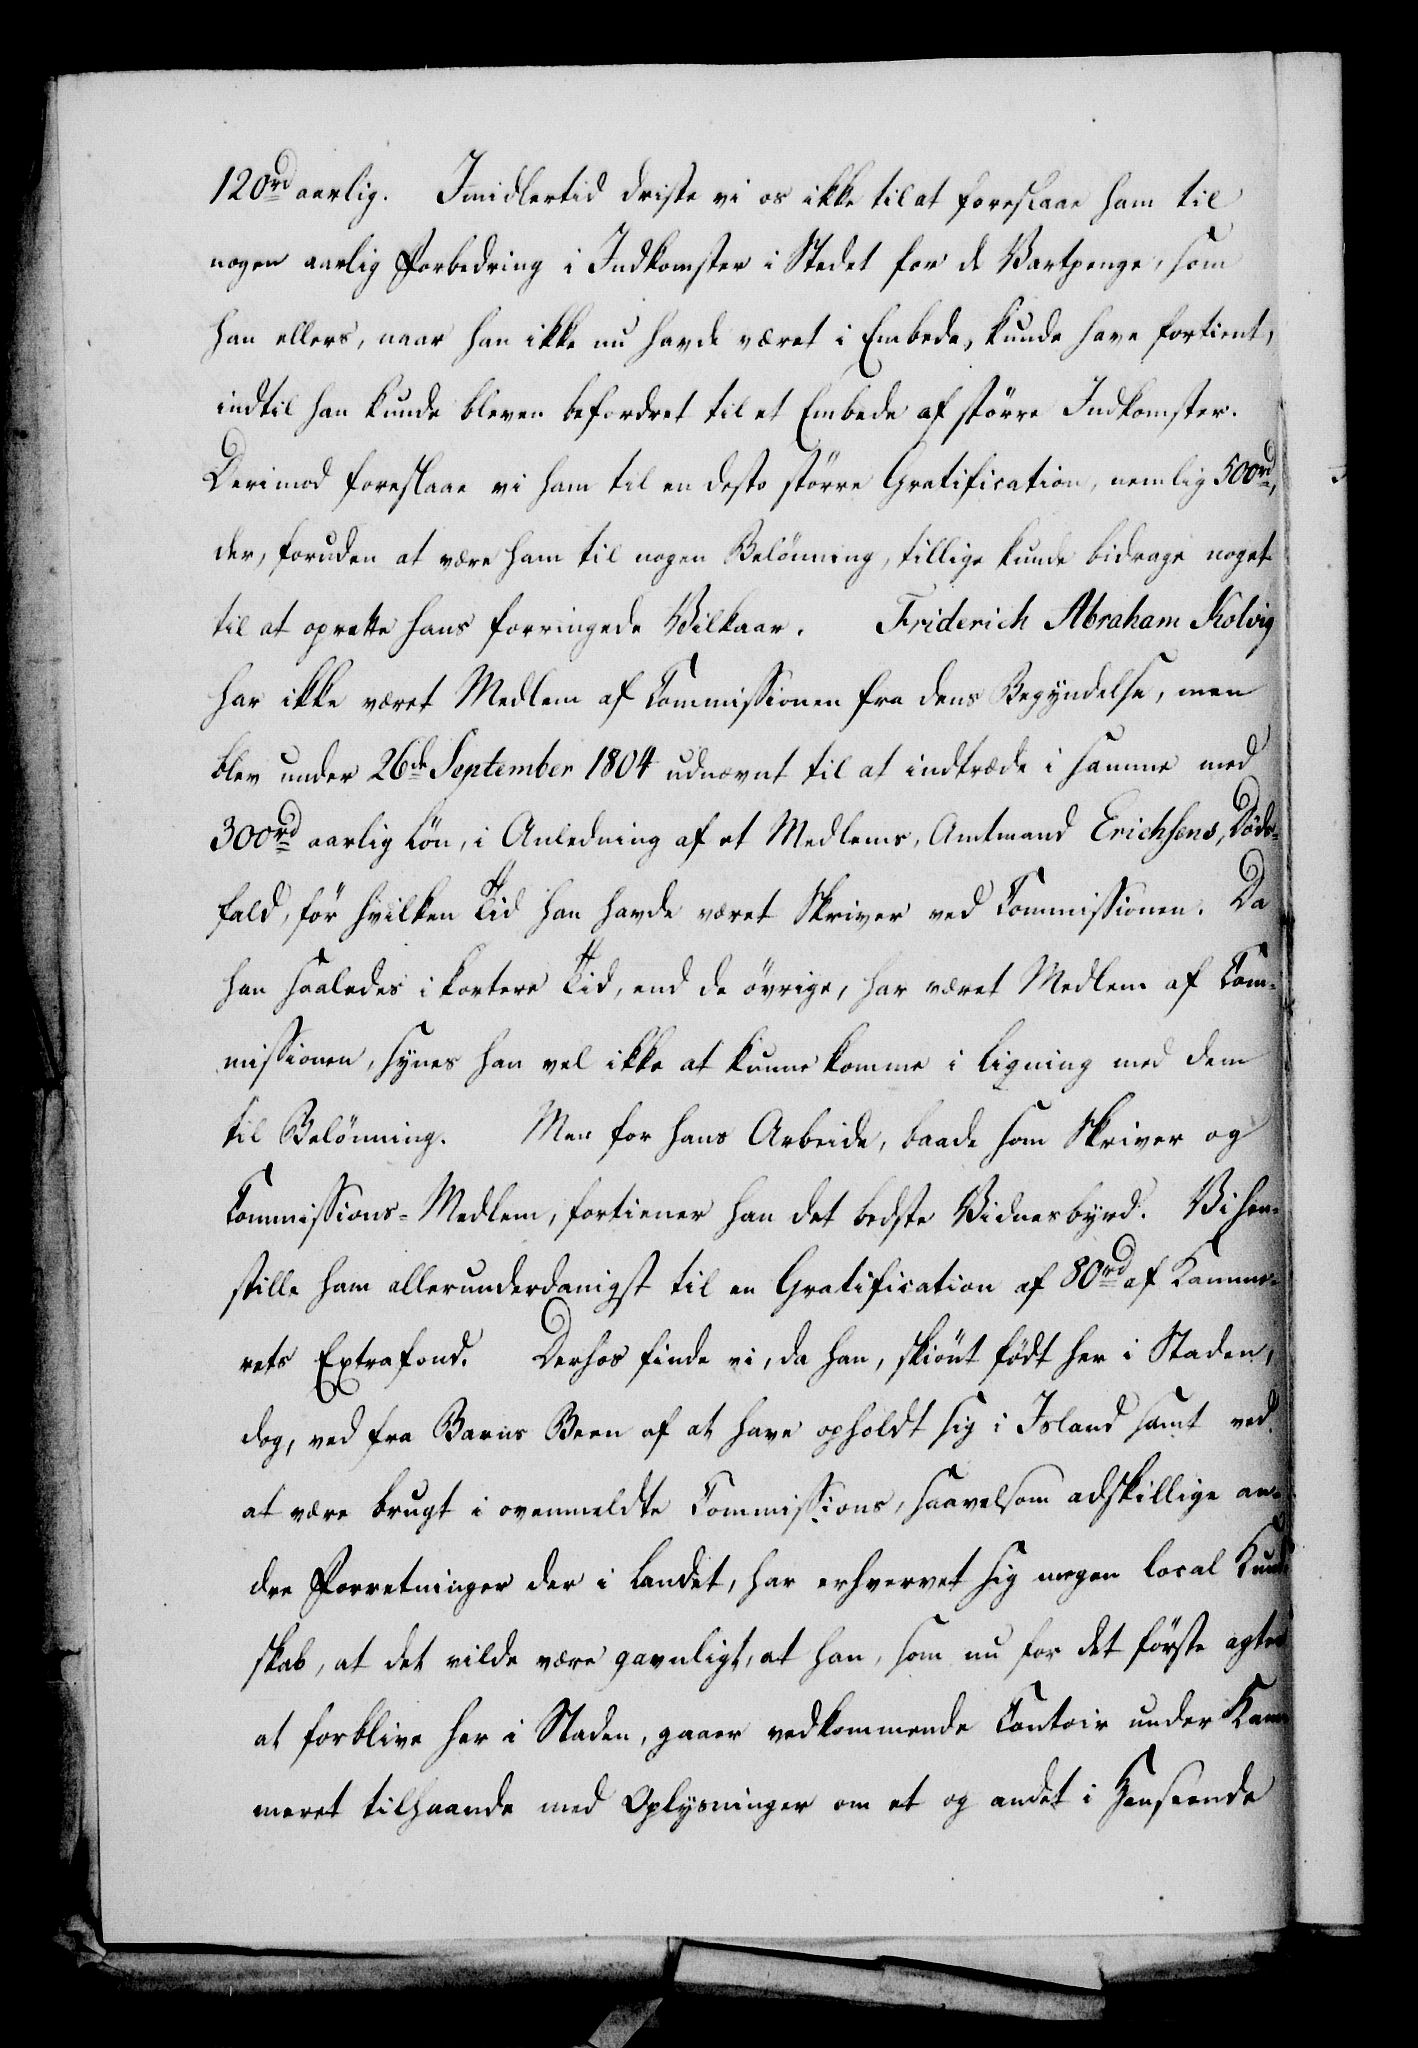 120rd aarlig. Imidlertid driste vi os ikke til at foreslaae ham til
nogen aarlig Forbedring i Indkomster i Stedet for de Vartpenge, som
han ellers, naar han ikke nu havde været i Embede, kunde have fortient,
indtil han kunde bleven befordret til et Embede af större Indkomster.
Derimod foreslaae vi ham til en desto större Gratification, nemlig 500rd,
der, foruden at være ham til nogen Belönning, tillige kunde bidrage noget
til at oprette hans forringede Vilkaar. Friderich Abraham Kolvig
har ikke været Medlem af Commissionen fra dens Begyndelse, men
blev under 26de September 1804 udnævnt til at indtræde i samme med
300rd aarlig Lön, i Anledning af et Medlems, Amtmand Erichsens, Döds-
fald, för hvilken Tid han havde været Skriver ved Commissionen. Da
han saaledes i kortere Tid, end de övrige, har været Medlem af Com-
missionen, synes han vel ikke at kunne komme i Ligning med dem
til Belönning. Men for hans Arbeide, baade som Skriver og
Commissions-Medlem, fortiener han det bedste Vidnesbyrd. Vi hen-
stille ham allerunderdanigst til en Gratification af 80rd af Kamme-
rets Extrafond. Derhos finde vi, da han, skiönt födt her i Staden,
dog, ved fra Barns Been af at have opholdt sig i Island samt ved
at være brugt i ovenmeldte Commissions, saavelsom adskillige an-
dre Forretninger der i Landet, har erhvervet sig megen local Kund
skab, at det vilde være gavnligt, at han, som nu for det förste agter
at forblive her i Staden, gaaer vedkommende Contoir under Kam
meret tilhaande med Oplysninger om et og andet i Henseende